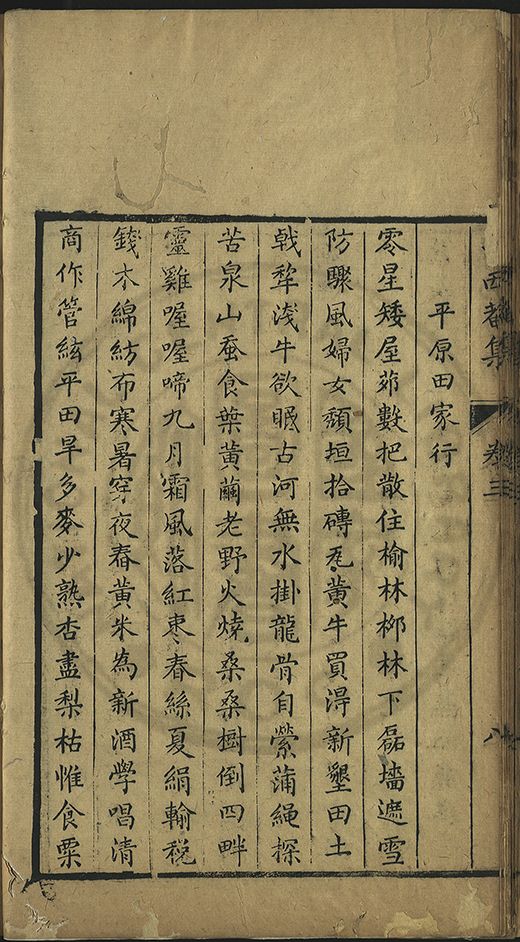 西都集 卷三 八
平原田家行
零星矮屋茆數把散住榆林柳林下磊墻遮雪
防驟風婦女頽垣拾磚瓦黃牛買淂新墾田土
戟犂淺牛欲眠古河無水掛龍骨自縈蒲繩探
苦泉山蚕食葉黃繭老野火燒桑桑樹倒四畔
靈雞喔喔啼九月霜風落紅枣春絲夏絹輸税
錢木綿紡布寒暑穿夜舂黃米為新酒學唱清
商作管絃平田旱多麥少熟杏盡梨枯惟食粟